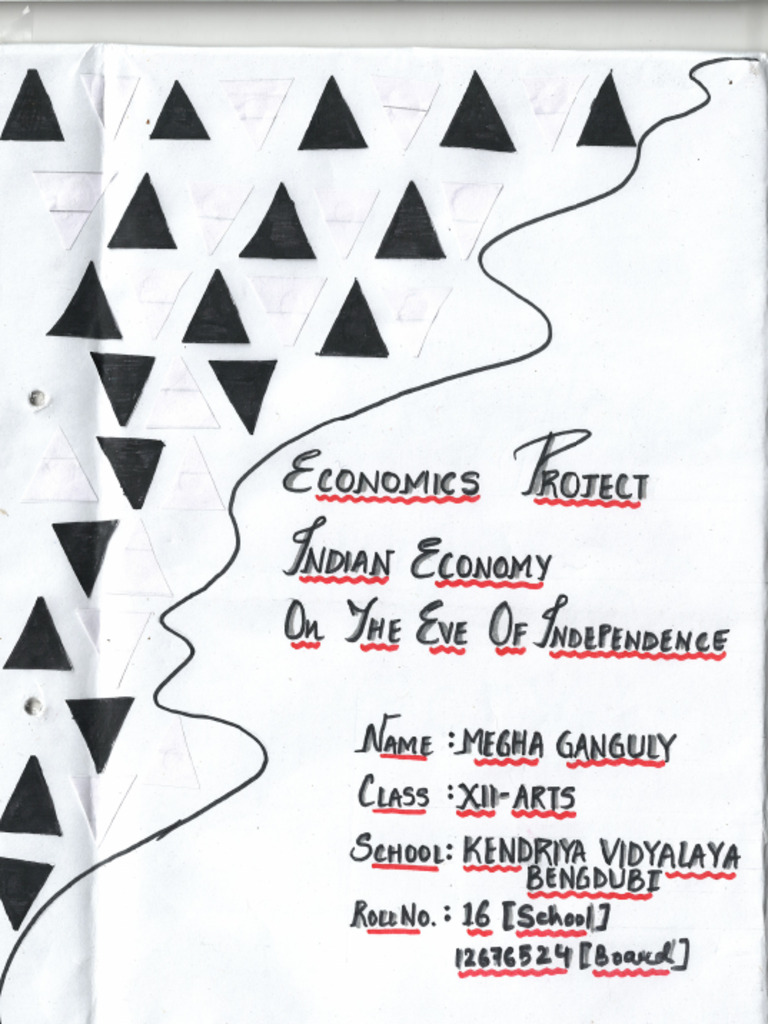 ECONOMICS PROJECT
INDIAN ECONOMY
On THE EVE OF INDEPENDENCE
NAME : MEGHA GANGULY
CLASS : XII-ARTS
SCHOOL: KENDRIYA VIDYALAYA
BENGDUBI
ROLL NO. : 16 [School]
12676524 [Board]